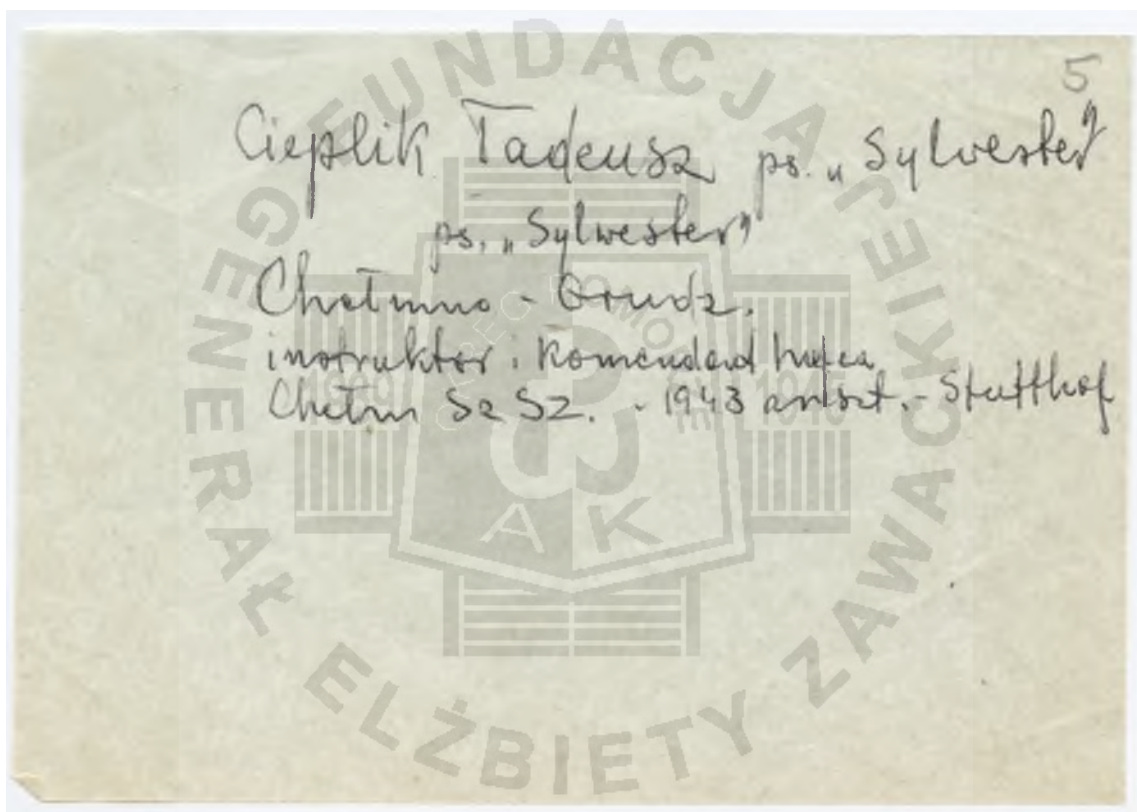 5
Cieplik Tadeusz ps. „Sylwester”
ps. „Sylwester”
Chełmno - Grudz.
instruktor i Komendant hufca
Chełm Sz SZ. - 1943 areszt. - Stutthof
FUNDACJA
GENERAŁ ELŻBIETY ZAWACKIEJ
OKRĘG POMORZE
1939 1945
AK